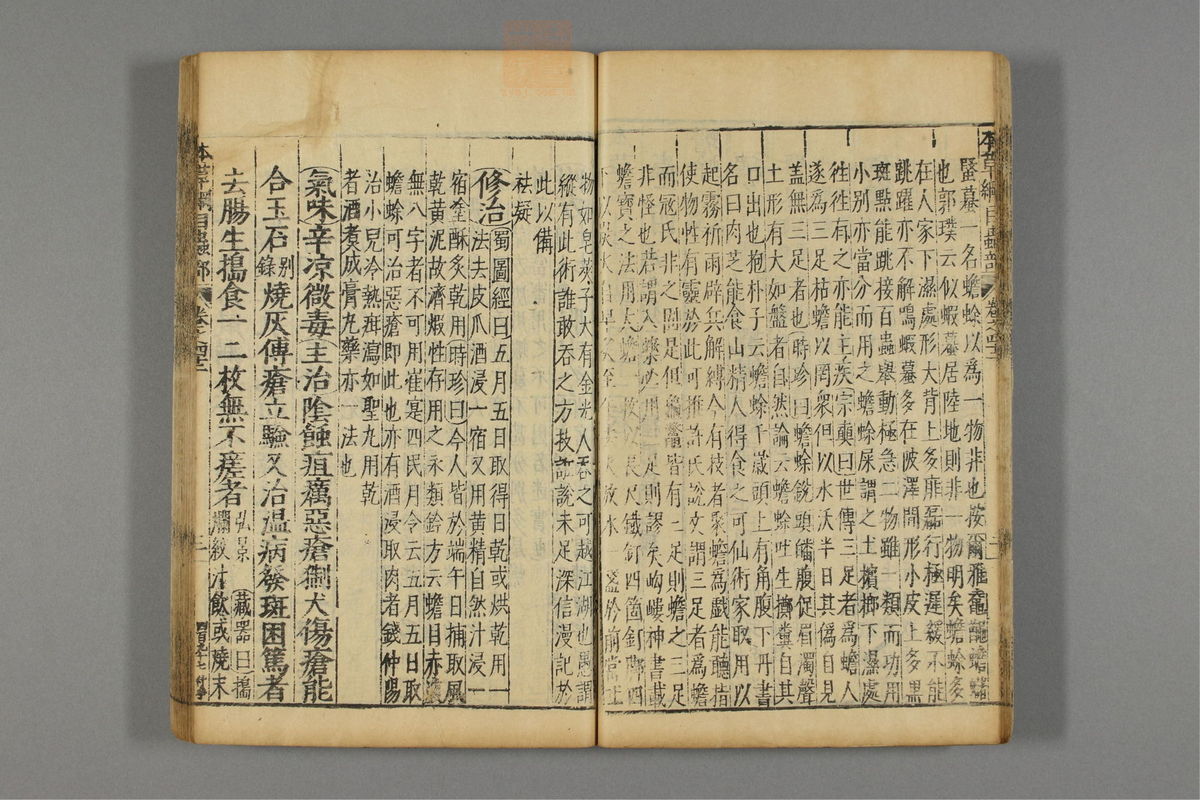 本草綱目蟲部 卷之四十二
蟇一名蟾蜍以爲一物非也按爾雅鼁𪓰蟾蠩
也郭璞云似蝦蟇居陸地則非一物明矣蟾蜍多
在人家下濕處形大背上多痱磊行極遲緩不能
跳躍亦不解鳴蝦蟇多在陂澤間形小皮上多黑
斑點能跳接百蟲舉動極急二物雖一類而功用
小別亦當分而用之蟾蜍屎謂之土檳榔下濕處
往往有之亦能主疾宗奭曰世傳三足者爲蟾人
遂爲三足枯蟾以罔衆但以水沃半日其僞自見
盖無三足者也時珍曰蟾蜍銳頭皤腹促眉濁聲
土形有大如盤者自然論云蟾蜍吐生擲糞自其
口出也抱朴子云蟾蜍千歲頭上有角腹下丹書
名曰肉芝能食山精人得食之可仙術家取用以
起霧祈雨辟兵解縛今有技者聚蟾爲戲能聽指
使物性有靈於此可推許氏說文謂三足者爲蟾
而寇氏非之固是但 皆有三足則蟾之三足
非怪也若謂入藥必用三足則謬矣岣嶁神書載
蟾寶之法用大蟾一枚以長尺鐵釘四箇釘脚四
物如皂莢子大有金光人吞之可越江湖也愚謂
縱有此術誰敢吞之方技誑說未足深信漫記於
此以備
袪疑
修治蜀圖經曰五月五日取得日乾或烘乾用一
法去皮爪酒浸一宿又用黄精自然汁浸一
宿塗酥炙乾用時珍曰今人皆於端午日捕取風
乾黄泥故濟煅性存用之永類鈐方云蟾目赤腹
無八字者不可用崔寔四民月令云五月五日取
蟾蜍可治惡瘡即此也亦有酒浸取肉者錢仲陽
治小兒冷熱疳瀉如聖丸用乾
者酒煮成膏丸藥亦一法也
氣味辛凉微毒主治陰蝕疽癘惡瘡猘犬傷瘡能
合玉石别錄燒灰傅瘡立驗又治温病發斑困篤者
去腸生搗食一二枚無不瘥者弘景藏器曰搗爛絞汁飲或燒末
本草綱目蟲部 卷之四十二